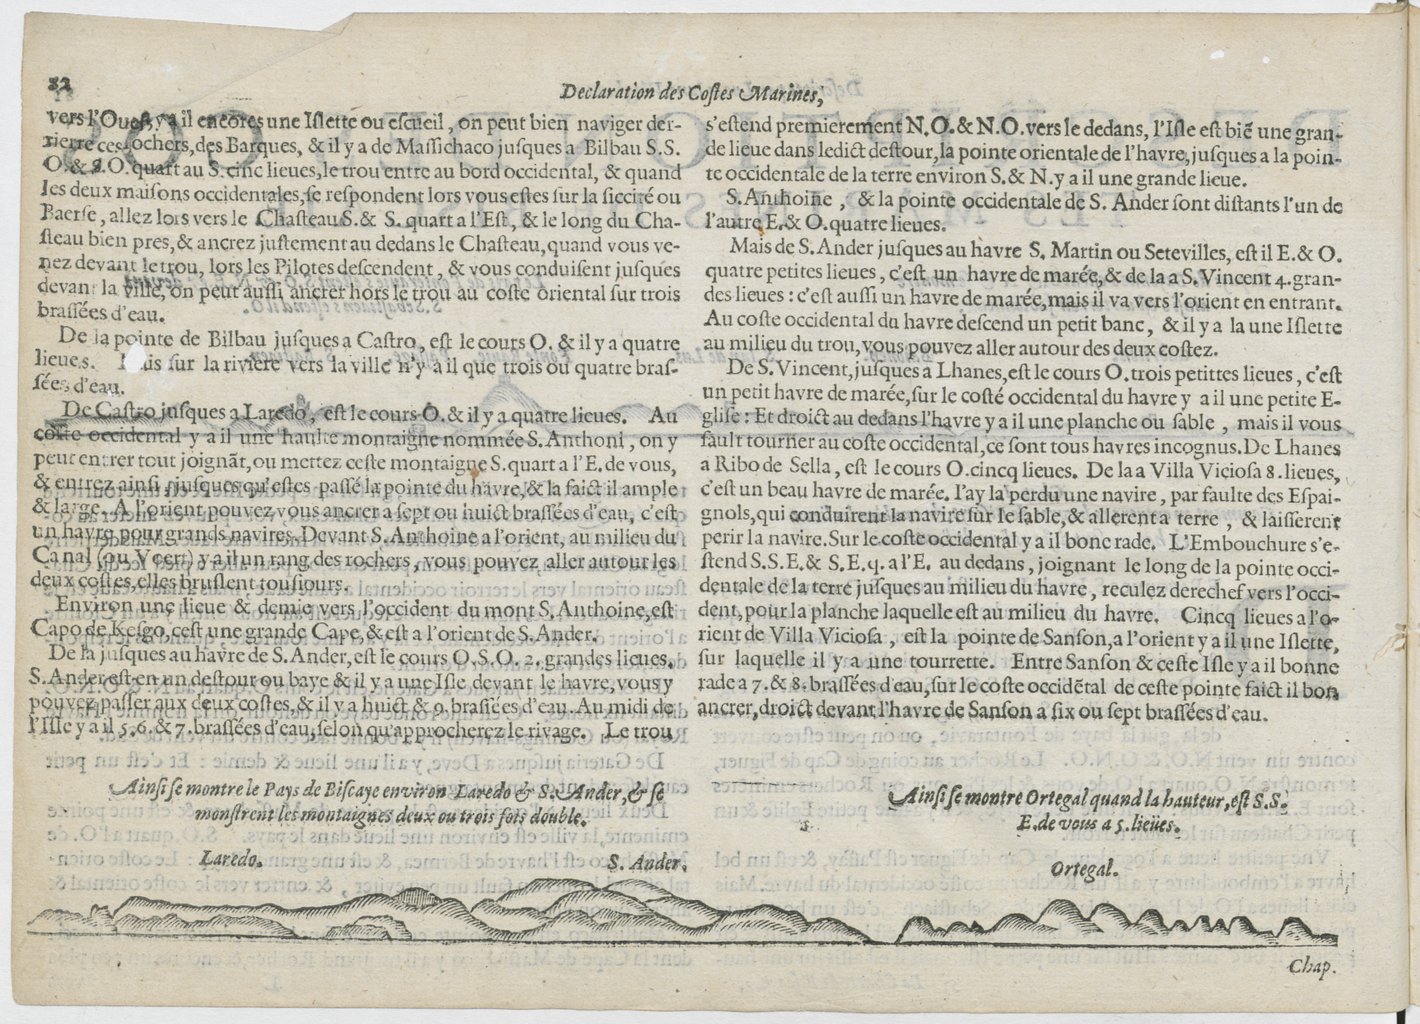 82
Declaration des Costes Marines,
vers l'Ouest, y a il encores une Islette ou escueil, on peut bien naviger der-
rierre ces rochers, des Barques, & il y a de Massichaco jusques a Bilbau S. S.
O. & S. O. quart au S. cinc lieues, le trou entre au bord occidental, & quand
les deux maisons occidentales, se respondent lors vous estes sur la siccité ou
Baerse, allez lors vers le Chasteau S. & S. quart a l'Est, & le long du Cha-
steau bien pres, & ancrez justement au dedans le Chasteau, quand vous ve-
nez devant le trou, lors les Pilotes descendent, & vous conduisent jusques
devant la ville, on peut aussi ancrer hors le trou au coste oriental sur trois
brassées d'eau.
De la pointe de Bilbau jusques a Castro, est le cours O. & il y a quatre
lieues. Mais sur la riviere vers la ville n'y a il que trois ou quatre bras-
sées d'eau.
De Castro jusques a Laredo, est le cours O. & il y a quatre lieues. Au
coste occidental y a il une haulte montaigne nommée S. Anthoni, on y
peut entrer tout joignãt, ou mettez ceste montaigne S. quart a l'E. de vous,
& entrez ainsi jusques qu'estes passé la pointe du havre, & la faict il ample
& large. A l'orient pouvez vous ancrer a sept ou huict brassées d'eau, c'est
un havre pour grands navires. Devant S. Anthoine a l'orient, au milieu du
Canal (ou Veert) y a il un rang des rochers, vous pouvez aller autour les
deux costes, elles bruslent tousjours.
Environ une lieue & demie vers l'occident du mont S. Anthoine, est
Capo de Kesgo, cest une grande Cape, & est a l'orient de S. Ander.
De la jusques au havre de S. Ander, est le cours O. S. O. 2. grandes lieues.
S. Ander est en un destour ou baye & il y a une Isle devant le havre, vous y
pouvez passer aux deux costes, & il y a huict & 9. brassées d'eau. Au midi de
l'Isle y a il 5. 6. & 7. brassées d'eau, selon qu'approcherez le rivage. Le trou
s'estend premierement N. O. & N. O. vers le dedans, l'Isle est biẽ une gran-
de lieue dans ledict destour, la pointe orientale de l'havre, jusques a la poin-
te occidentale de la terre environ S. & N. y a il une grande lieue.
S. Anthoine, & la pointe occidentale de S. Ander sont distants l'un de
l'autre E. & O. quatre lieues.
Mais de S. Ander jusques au havre S. Martin ou Setevilles, est il E. & O.
quatre petites lieues, c'est un havre de marée, & de la a S. Vincent 4. gran-
des lieues: c'est aussi un havre de marée, mais il va vers l'orient en entrant.
Au coste occidental du havre descend un petit banc, & il y a la une Islette
au milieu du trou, vous pouvez aller autour des deux costez.
De S. Vincent, jusques a Lhanes, est le cours O. trois petittes lieues, c'est
un petit havre de marée, sur le costé occidental du havre y a il une petite E-
glise: Et droict au dedans l'havre y a il une planche ou sable, mais il vous
fault tourner au coste occidental, ce sont tous havres incognus. De Lhanes
a Ribo de Sella, est le cours O. cincq lieues. De la a Villa Viciosa 8. lieues,
c'est un beau havre de marée. I'ay la perdu une navire, par faulte des Espai-
gnols, qui conduirent la navire sur le sable, & allerent a terre, & laisserent
perir la navire. Sur le coste occidental y a il bonc rade. L'Embouchure s'e-
stend S. S. E. & S. E. q. a l'E. au dedans, joignant le long de la pointe occi-
dentale de la terre jusques au milieu du havre, reculez derechef vers l'occi-
dent, pour la planche laquelle est au milieu du havre. Cincq lieues a l'o-
rient de Villa Viciosa, est la pointe de Sanson, a l'orient y a il une Islette,
sur laquelle il y a une tourrette. Entre Sanson & ceste Isle y a il bonne
rade a 7. & 8. brassées d'eau, sur le coste occidẽtal de ceste pointe faict il bon
ancrer, droict devant l'havre de Sanson a six ou sept brassées d'eau.
Ainsi se montre le Pays de Biscaye environ Laredo & S. Ander, & se
monstrent les montaignes deux ou trois fois double.
Laredo.
S. Ander.
Ainsi se montre Ortegal quand la hauteur, est S. S.
E. de vous a 5. lieües.
Ortegal.
Chap.